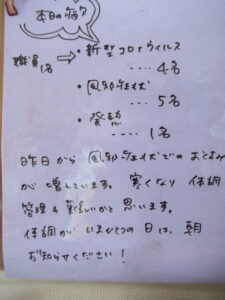 本日の病欠
職員1名 ⇒ ・新型コロナウイルス
‥‥ 4名
・風邪症状
‥‥ 5名
・発熱
‥‥ 1名
昨日から風邪症状でのお休み
が増えています。寒くなり体調
管理も難しいかと思います。
体調がいまひとつの日は、朝
お知らせください！